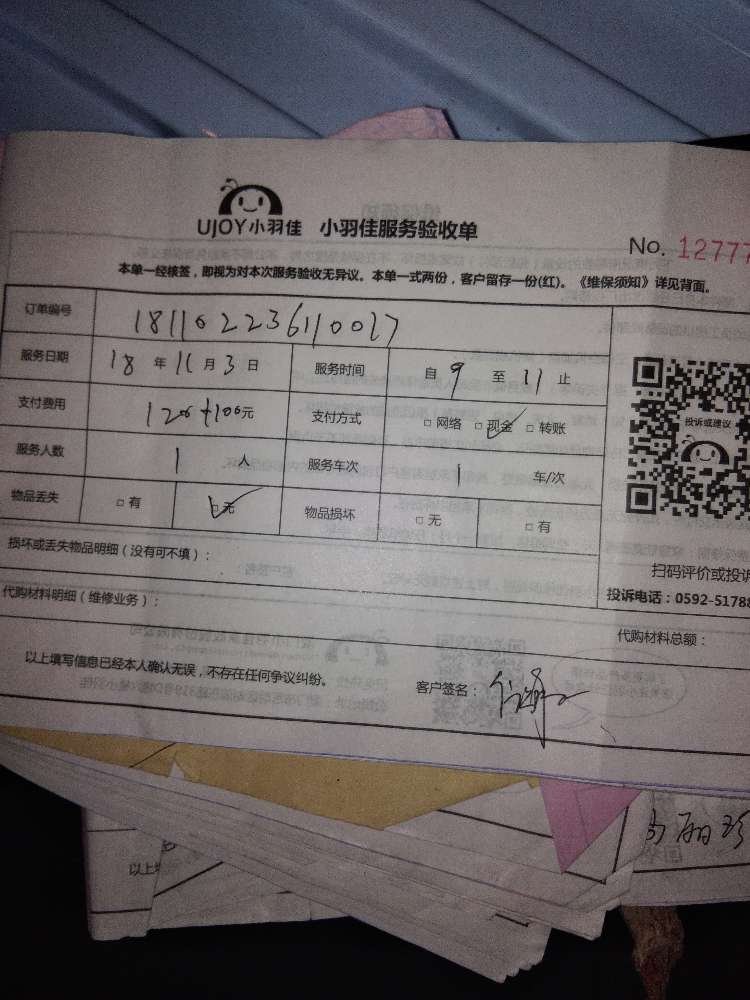 UJOY小羽佳 小羽佳服务验收单
No. 12777
本单一经核签，即视为对本次服务验收无异议。本单一式两份，客户留存一份(红)。《维保须知》详见背面。
订单编号 181102236110027
服务日期 18 年 11 月 3 日 服务时间 自 9 至 11 止
支付费用 120+100元 支付方式 □ 网络 □ 现金 □ 转账
投诉或建议
服务人数 1 人 服务车次 1 车/次
物品丢失 □ 有 □ 无 物品损坏 □ 无 □ 有
扫码评价或投诉
损坏或丢失物品明细（没有可不填）：
投诉电话：0592-51788
代购材料明细（维修业务）：
代购材料总额：
以上填写信息已经本人确认无误，不存在任何争议纠纷。 客户签名：
以上